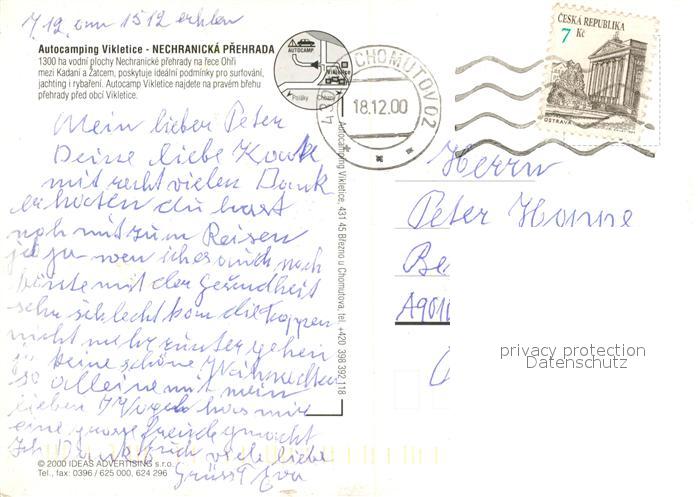 7.12. am 1512 erhlen
Autocamping Vikletice - NECHRANICKÁ PŘEHRADA
1300 ha vodní plochy Nechranické přehrady na řece Ohři
mezi Kadaní a Žatcem, poskytuje ideální podmínky pro surfování,
jachting i rybaření. Autocamp Vikletice najdete na pravém břehu
přehrady před obcí Vikletice.
AUTOCAMP
Vikletice
Poláky
Chbany
CHOMUTOV 02
18.12.00
ČESKÁ REPUBLIKA
7 Kč
OSTRAVA
Mein lieber Peter
Deine liebe
mit recht vielen Dank
erhalten du hast
noch mit zum Reisen
noch
mit der Gesundheit
sehr schlecht kom die Toppen
nicht mehr runter gehen
keine schöne Weihnachten
so alleine mit mein
lieben
eine grosse freude gemacht
Ich viele liebe
Grüsst Eva
Autocamping Vikletice, 431 45 Březno u Chomutova, tel. +420 398 392 118
Herrn
Peter Hanne
Be
A9010
privacy protection
Datenschutz
© 2000 IDEAS ADVERTISING s.r.o.
Tel., fax: 0396 / 625 000, 624 296